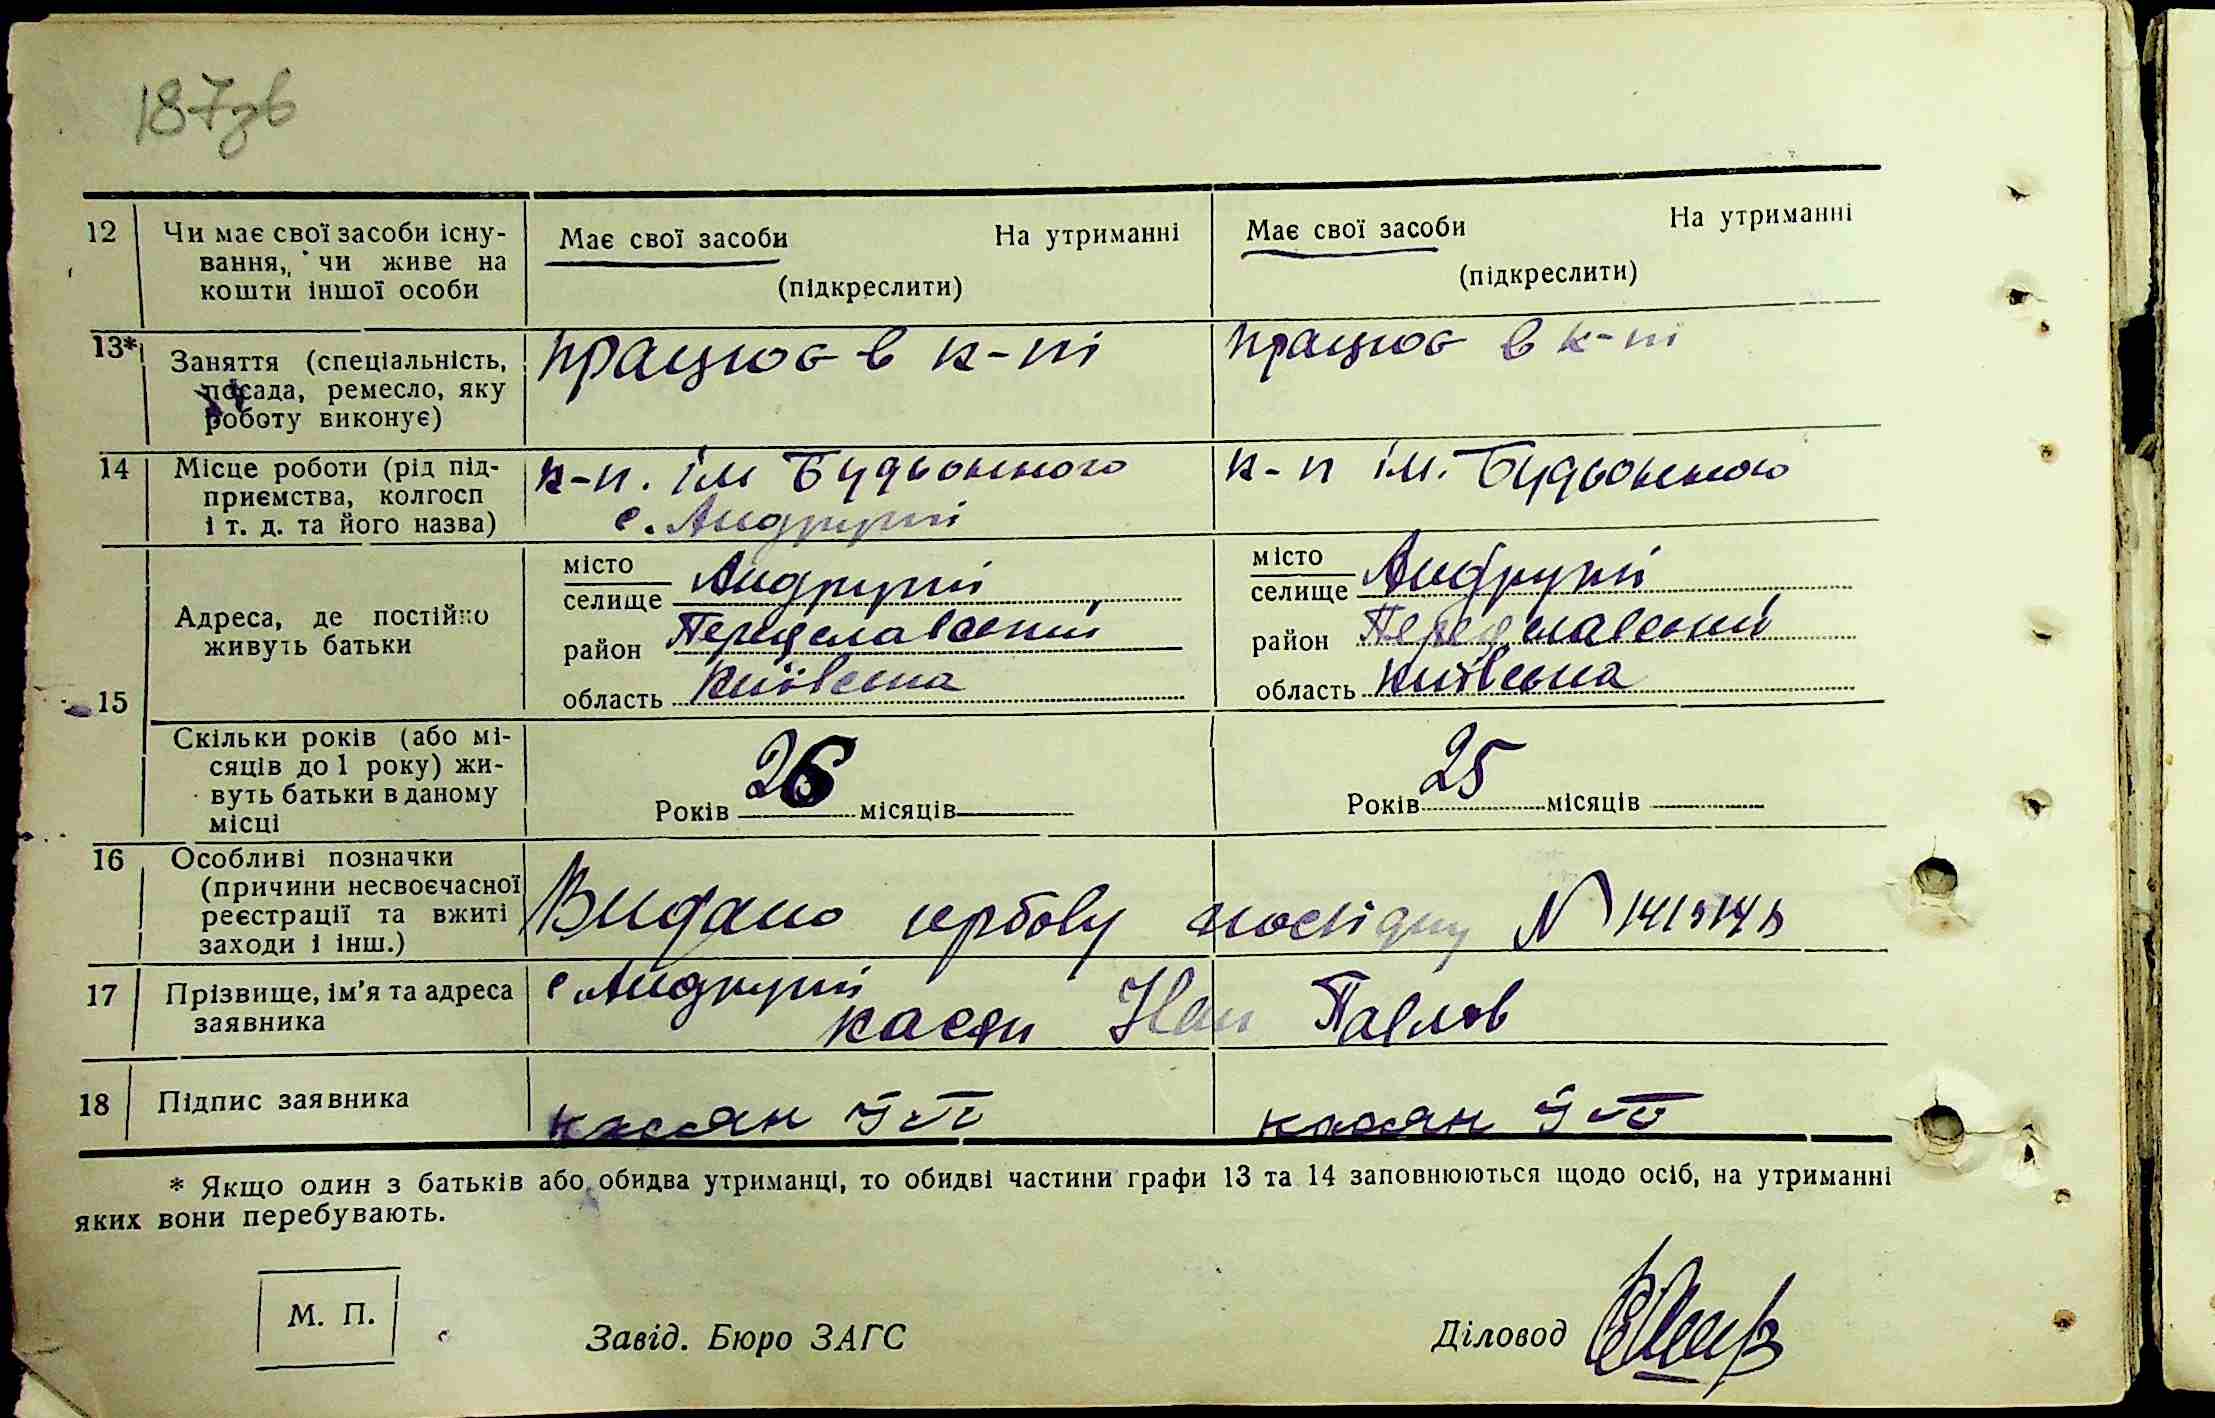 187зв
12 Чи має свої засоби існу-
вання, чи живе на
кошти іншої особи
Має свої засоби На утриманні
(підкреслити)
Має свої засоби На утриманні
(підкреслити)
13* Заняття (спеціальність,
посада, ремесло, яку
роботу виконує)
працює в к-пі
працює в к-пі
14 Місце роботи (рід під-
приємства, колгосп
і т. д. та його назва)
к-п. ім Будьонного
с. Андруші
к-п ім. Будьонного
15 Адреса, де постійно
живуть батьки
місто
селище Андруші
район Переяславський
область Київська
місто
селище Андруші
район Переяславський
область Київська
Скільки років (або мі-
сяців до 1 року) жи-
вуть батьки в даному
місці
Років 26 місяців
Років 25 місяців
16 Особливі позначки
(причини несвоєчасної
реєстрації та вжиті
заходи і інш.)
Видано гербову посвідку №
17 Прізвище, ім'я та адреса
заявника
с Андруші
Касян Іван Павлов
18 Підпис заявника
касян
касян
* Якщо один з батьків або обидва утриманці, то обидві частини графи 13 та 14 заповнюються щодо осіб, на утриманні
яких вони перебувають.
М. П.
Завід. Бюро ЗАГС
Діловод